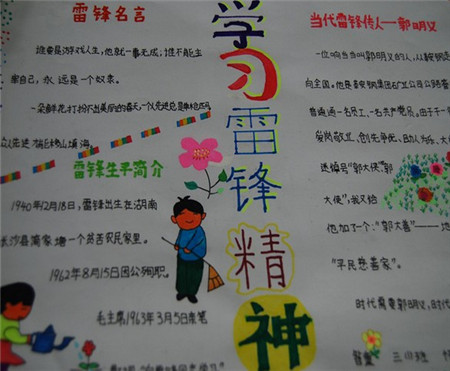 雷锋名言
谁要是游戏人生,他就一事无成;谁不能主
宰自己,永远是一个奴隶。
一朵鲜花打扮不出美丽的春天,一个人先进总是单枪匹马
众人先进才能移山填海。
雷锋生平简介
1940年12月18日,雷锋出生在湖南
长沙县简家塘一个贫苦农民家里。
1962年8月15日因公殉职。
毛主席1963年3月5日亲笔
学习雷锋精神
当代雷锋传人—郭明义
一位响当当叫郭明义的人,从鞍钢
向全国。他是鞍钢集团矿业公司公路
普通通一名员工,一名共产党员。由于
爱岗敬业,创先争优,助人为乐,大
送绰号“郭大侠”。郭
大侠”,我又给
他加了一个:“郭大善”——地
“平民慈善家”。
时代需要郭明义,时代
三(1)班